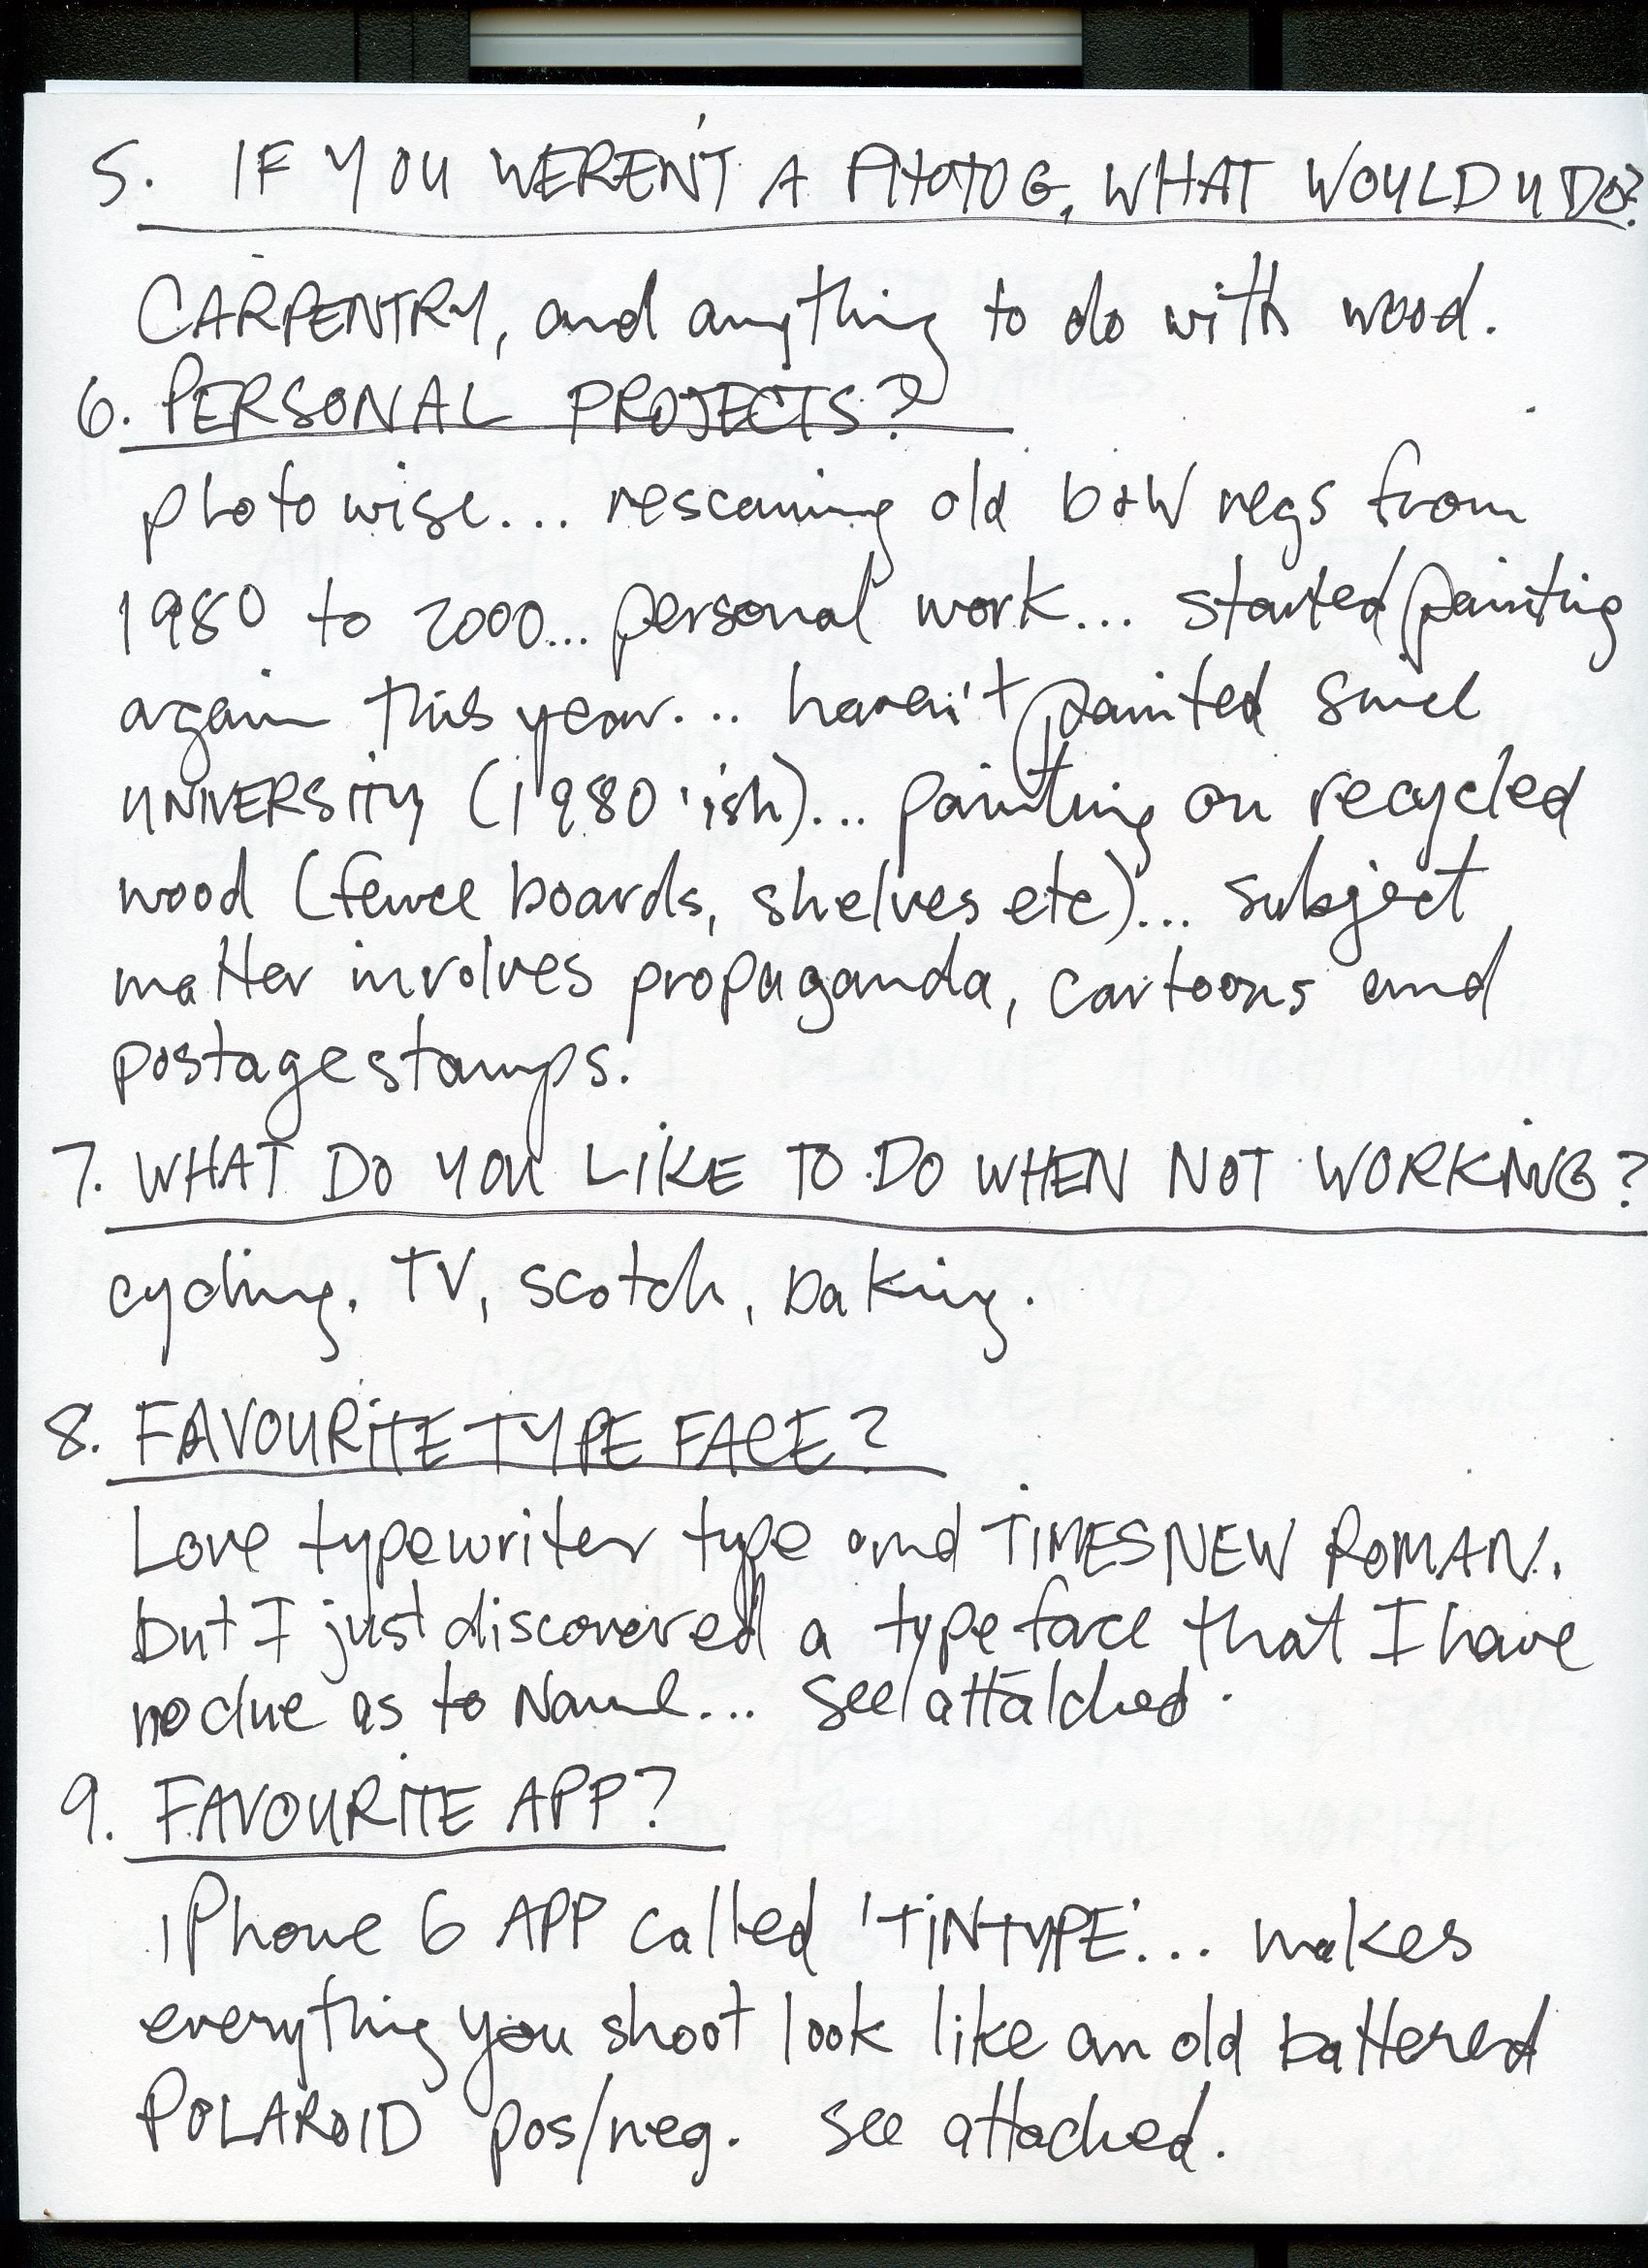 5. IF YOU WEREN'T A PHOTOG, WHAT WOULD U DO?
CARPENTRY, and anything to do with wood.
6. PERSONAL PROJECTS?
photo wise... rescanning old b+W negs from
1980 to 2000... personal work... started painting
again this year... haven't painted since
UNIVERSITY (1980'ish)... painting on recycled
wood (fence boards, shelves etc)... subject
matter involves propaganda, cartoons and
postage stamps.
7. WHAT DO YOU LIKE TO DO WHEN NOT WORKING?
cycling, TV, scotch, baking.
8. FAVOURITE TYPE FACE?
Love typewriter type and TIMES NEW ROMAN.
but I just discovered a type face that I have
no clue as to Name... see attatched.
9. FAVOURITE APP?
iPhone 6 APP called 'TINTYPE'... makes
everything you shoot look like an old battered
POLAROID pos/neg. see attached.